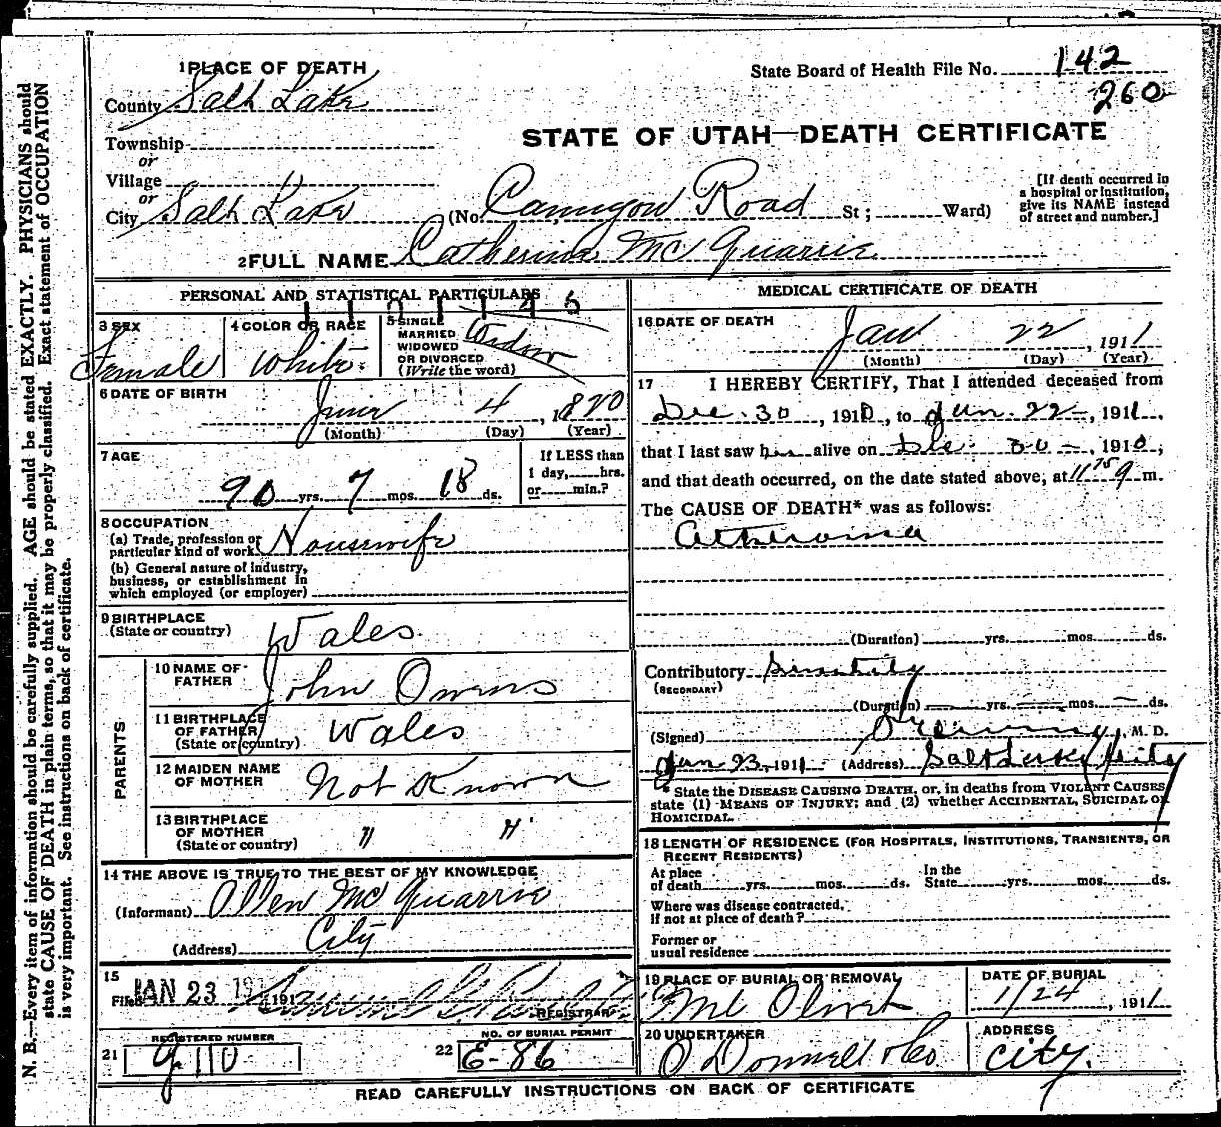 1 PLACE OF DEATH
State Board of Health File No. 142
260
County Salt Lake
STATE OF UTAH—DEATH CERTIFICATE
Township
or
Village
or
City Salt Lake (No. Road St ; Ward)
[If death occurred in
a hospital or institution,
give its NAME instead
of street and number.]
2 FULL NAME Catherine McQuarrie
PERSONAL AND STATISTICAL PARTICULARS
3 SEX
Female
4 COLOR OR RACE
White
5 SINGLE
MARRIED
WIDOWED
OR DIVORCED
(Write the word)
Widow
6 DATE OF BIRTH
June 4, 1820
(Month) (Day) (Year)
7 AGE
90 yrs. 7 mos. 18 ds.
If LESS than
1 day, hrs.
or min.?
8 OCCUPATION
(a) Trade, profession or
particular kind of work Housewife
(b) General nature of industry,
business, or establishment in
which employed (or employer)
9 BIRTHPLACE
(State or country) Wales
PARENTS
10 NAME OF
FATHER John Owens
11 BIRTHPLACE
OF FATHER
(State or country) Wales
12 MAIDEN NAME
OF MOTHER Not Known
13 BIRTHPLACE
OF MOTHER
(State or country) " "
14 THE ABOVE IS TRUE TO THE BEST OF MY KNOWLEDGE
(Informant) Allen McQuarrie
(Address) City
15
Filed JAN 23 191
REGISTRAR
REGISTERED NUMBER
21 g 110
NO. OF BURIAL PERMIT
22 E-86
MEDICAL CERTIFICATE OF DEATH
16 DATE OF DEATH
Jan 22, 1911
(Month) (Day) (Year)
17 I HEREBY CERTIFY, That I attended deceased from
Dec. 30, 1910, to Jan. 22, 1911,
that I last saw h alive on Dec. 30, 1910,
and that death occurred, on the date stated above, at m.
The CAUSE OF DEATH* was as follows:
Atheroma
(Duration) yrs. mos. ds.
Contributory Senility
(SECONDARY)
(Duration) — yrs. — mos. — ds.
(Signed) M. D.
Jan 23, 1911 (Address) Salt Lake City
* State the DISEASE CAUSING DEATH, or, in deaths from VIOLENT CAUSES
state (1) MEANS OF INJURY; and (2) whether ACCIDENTAL, SUICIDAL OR
HOMICIDAL.
18 LENGTH OF RESIDENCE (FOR HOSPITALS, INSTITUTIONS, TRANSIENTS, OR
RECENT RESIDENTS)
At place
of death yrs. mos. ds.
In the
State yrs. mos. ds.
Where was disease contracted,
if not at place of death?
Former or
usual residence
19 PLACE OF BURIAL OR REMOVAL
Mt Olivet
DATE OF BURIAL
1/24, 1911
20 UNDERTAKER
O'Donnell & Co
ADDRESS
City.
READ CAREFULLY INSTRUCTIONS ON BACK OF CERTIFICATE
N. B.—Every item of information should be carefully supplied. AGE should be stated EXACTLY. PHYSICIANS should
state CAUSE OF DEATH in plain terms, so that it may be properly classified. Exact statement of OCCUPATION
is very important. See instructions on back of certificate.